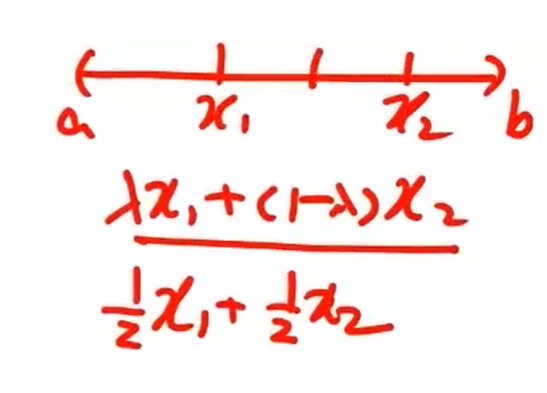 a x₁ x₂ b
λx₁+(1-λ)x₂
½x₁+½x₂